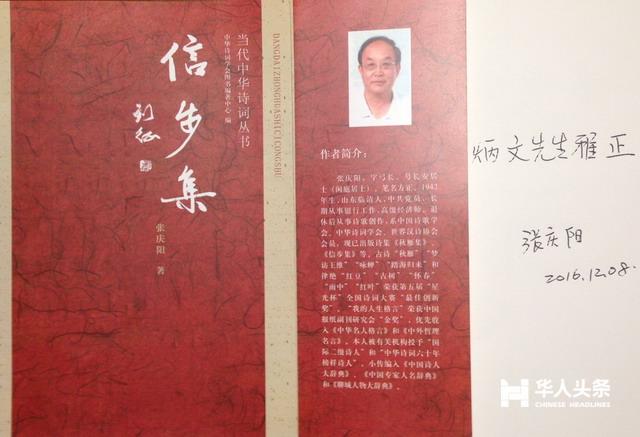 信步集
刘征
张庆阳 著
当代中华诗词丛书
中华诗词学会图书编著中心 编
DANGDAIZHONGHUASHICICONGSHU
作者简介：
张庆阳，字弓长，号长安居
士（闲庭居士），笔名方正，1942
年生，山东临清人，中共党员，长
期从事银行工作，高级经济师。退
休后从事诗歌创作，系中国诗歌学
会、中华诗词学会、世界汉诗协会
会员，现已出版诗集《秋雁集》、
《信步集》等。古诗“秋雁”“梦
访王维”“咏蝉”“踏海归来”和
律绝“红豆”“古树”“怀春”
“雨中”“红叶”荣获第五届“星
光杯”全国诗词大赛“最佳创新
奖”。“我的人生格言”荣获中国
报纸副刊研究会“金奖”，优先收
入《中华名人格言》和《中外哲理
名言》。本人被有关机构授予“国
际二级诗人”和“中华诗词六十年
榜样诗人”。小传编入《中国诗人
大辞典》、《中国专家人名辞典》
和《聊城人物大辞典》。
炳文先生雅正
张庆阳
2016.12.08.
华人头条
CHINESE HEADLINES